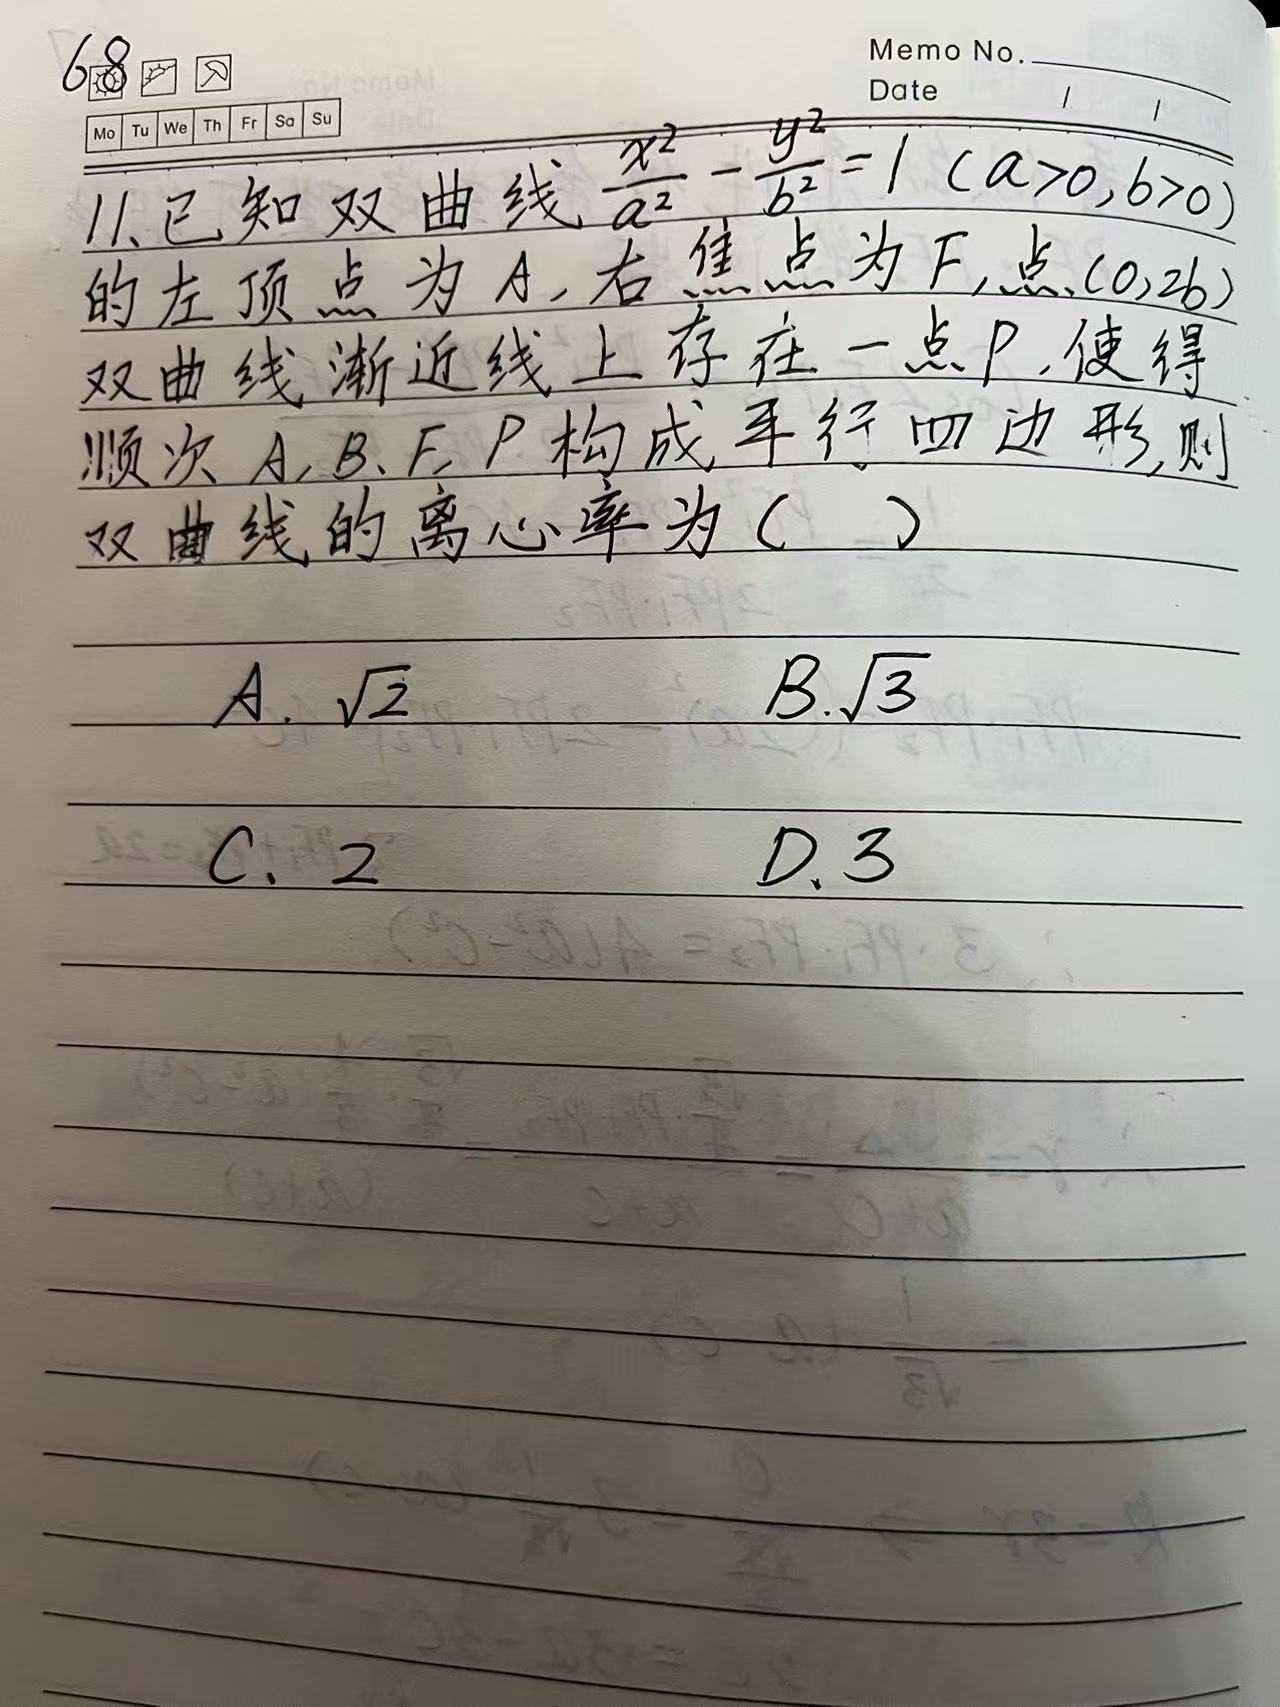 68
Memo No.
Date / /
Mo Tu We Th Fr Sa Su
11、已知双曲线 x²/a² - y²/b² = 1 (a>0, b>0)
的左顶点为A,右焦点为F,点(0,2b)
双曲线渐近线上存在一点P,使得
顺次A、B、F、P构成平行四边形,则
双曲线的离心率为( )
A. √2 B. √3
C. 2 D. 3